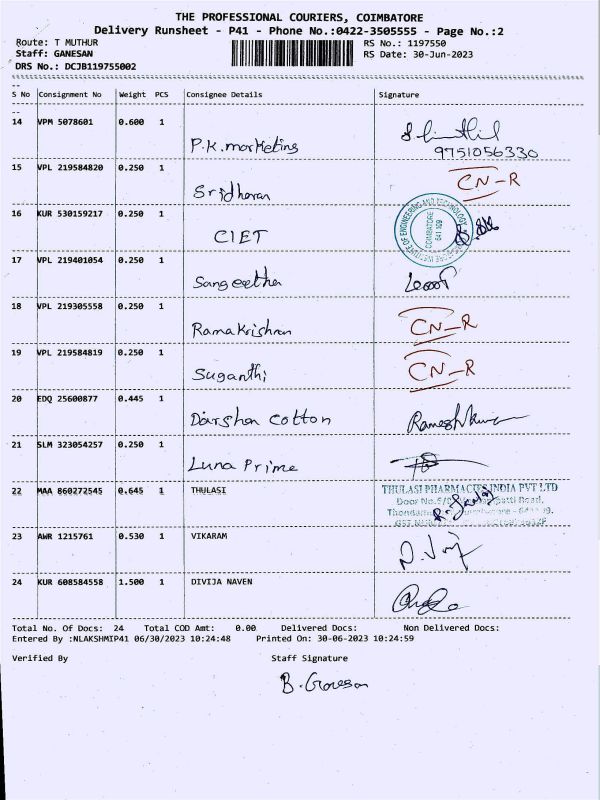 THE PROFESSIONAL COURIERS, COIMBATORE
Delivery Runsheet - P41 - Phone No.:0422-3505555 - Page No.:2
Route: T MUTHUR RS No.: 1197550
Staff: GANESAN RS Date: 30-Jun-2023
DRS No.: DCJB119755002
S No Consignment No Weight PCS Consignee Details Signature
14 VPM 5078601 0.600 1
P.K. marketing
9751056330
15 VPL 219584820 0.250 1
Sridharan CN-R
16 KUR 530159217 0.250 1
CIET
COIMBATORE
641 109
17 VPL 219401054 0.250 1
Sangeetha
18 VPL 219305558 0.250 1
Ramakrishnan CN-R
19 VPL 219584819 0.250 1
Suganthi CN-R
20 EDQ 25600877 0.445 1
Darshan cotton Rameshkumar
21 SLM 323054257 0.250 1
Luna Prime
22 MAA 860272545 0.645 1 THULASI THULASI PHARMACIES INDIA PVT LTD
Door No.
23 AWR 1215761 0.530 1 VIKARAM
24 KUR 608584558 1.500 1 DIVIJA NAVEN
Total No. Of Docs: 24 Total COD Amt: 0.00 Delivered Docs: Non Delivered Docs:
Entered By :NLAKSHMIP41 06/30/2023 10:24:48 Printed On: 30-06-2023 10:24:59
Verified By Staff Signature